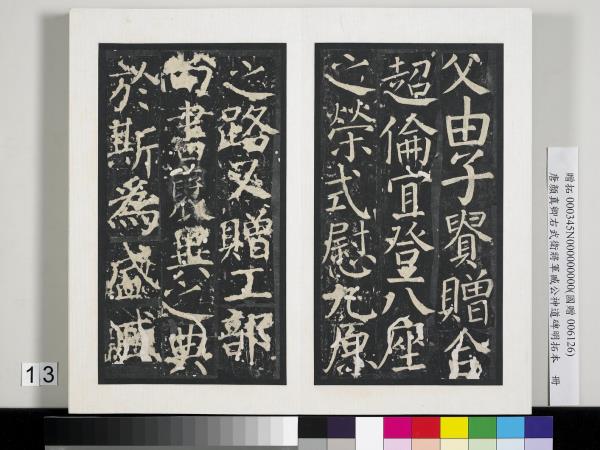 父由子貴贈合
超倫宜登八座
之榮式慰九原
之路又贈工部
尚書展異之典
於斯為盛臧
贈拓 000345N000000000(國贈 006126)
唐顏真卿右武衛將軍臧公神道碑明拓本 冊
13